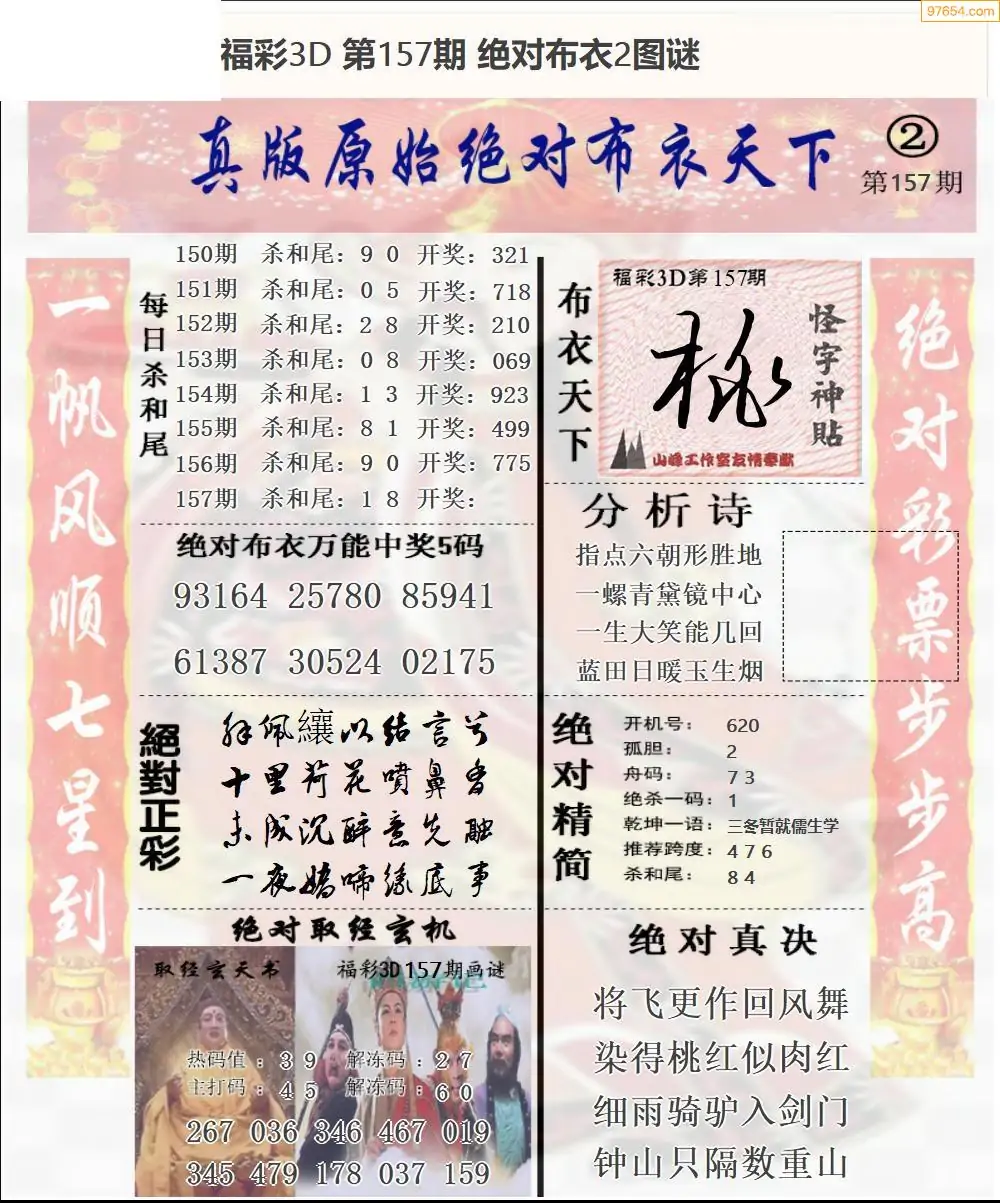 97654.com
福彩3D 第157期 绝对布衣2图谜
真版原始绝对布衣天下
②
第157期
一帆风顺七星到
每日杀和尾
150期 杀和尾：9 0 开奖：321
151期 杀和尾：0 5 开奖：718
152期 杀和尾：2 8 开奖：210
153期 杀和尾：0 8 开奖：069
154期 杀和尾：1 3 开奖：923
155期 杀和尾：8 1 开奖：499
156期 杀和尾：9 0 开奖：775
157期 杀和尾：1 8 开奖：
绝对布衣万能中奖5码
93164 25780 85941
61387 30524 02175
絕對正彩
解佩纕以结言兮
十里荷花喷鼻香
未成沉醉意先融
一夜娇啼缘底事
绝对取经玄机
取经玄天书
福彩3D157期画谜
热码值：3 9 解冻码：2 7
主打码：4 5 解冻码：6 0
267 036 346 467 019
345 479 178 037 159
布衣天下
福彩3D第157期
怪字神貼
山峰工作室友情奉献
分析诗
指点六朝形胜地
一螺青黛镜中心
一生大笑能几回
蓝田日暖玉生烟
绝对精简
开机号： 620
孤胆： 2
舟码： 7 3
绝杀一码：1
乾坤一语：三冬暂就儒生学
推荐跨度：4 7 6
杀和尾： 8 4
绝对真决
将飞更作回风舞
染得桃红似肉红
细雨骑驴入剑门
钟山只隔数重山
绝对彩票步步高